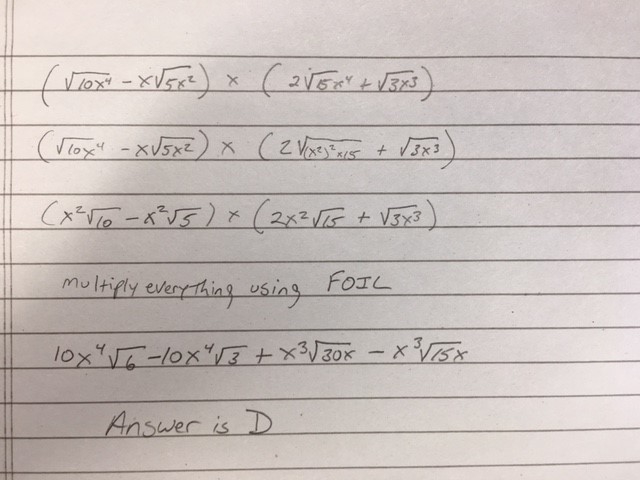 (√10x⁴ - x√5x²) × (2√15x⁴ + √3x³)
(√10x⁴ - x√5x²) × (2√(x²)²×15 + √3x³)
(x²√10 - x²√5) × (2x²√15 + √3x³)
multiply everything using FOIL
10x⁴√6 - 10x⁴√3 + x³√30x - x³√15x
Answer is D